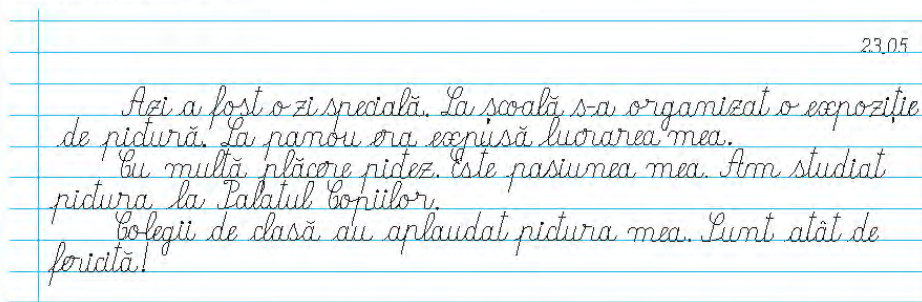 23.05
Azi a fost o zi specială. La școală s-a organizat o expoziție
de pictură. La panou era expusă lucrarea mea.
Cu multă plăcere pictez. Este pasiunea mea. Am studiat
pictura la Palatul Copiilor.
Colegii de clasă au aplaudat pictura mea. Sunt atât de
fericită!